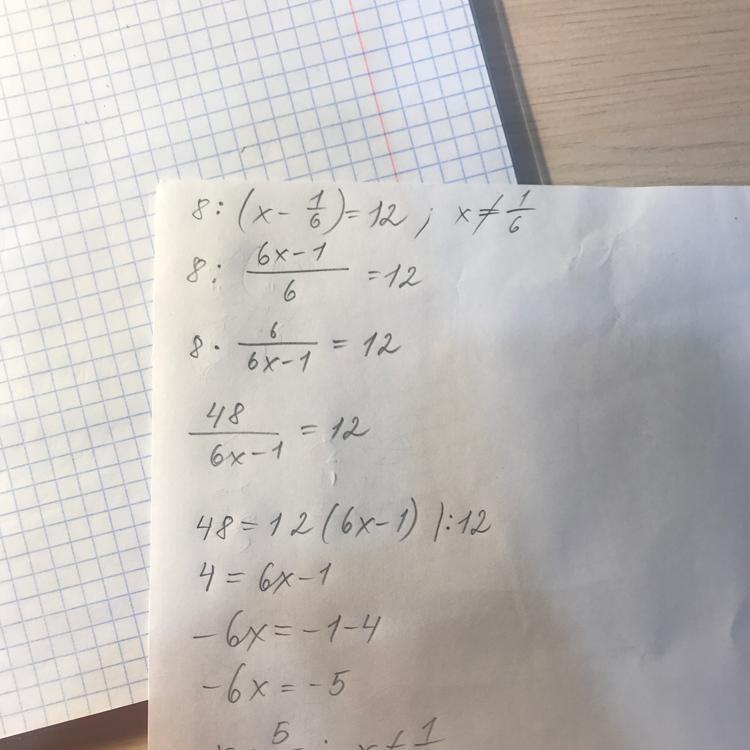 8 : (x - 1/6) = 12 ; x ≠ 1/6
8 : (6x-1)/6 = 12
8 · 6/(6x-1) = 12
48/(6x-1) = 12
48 = 12 (6x-1) |:12
4 = 6x-1
-6x = -1-4
-6x = -5